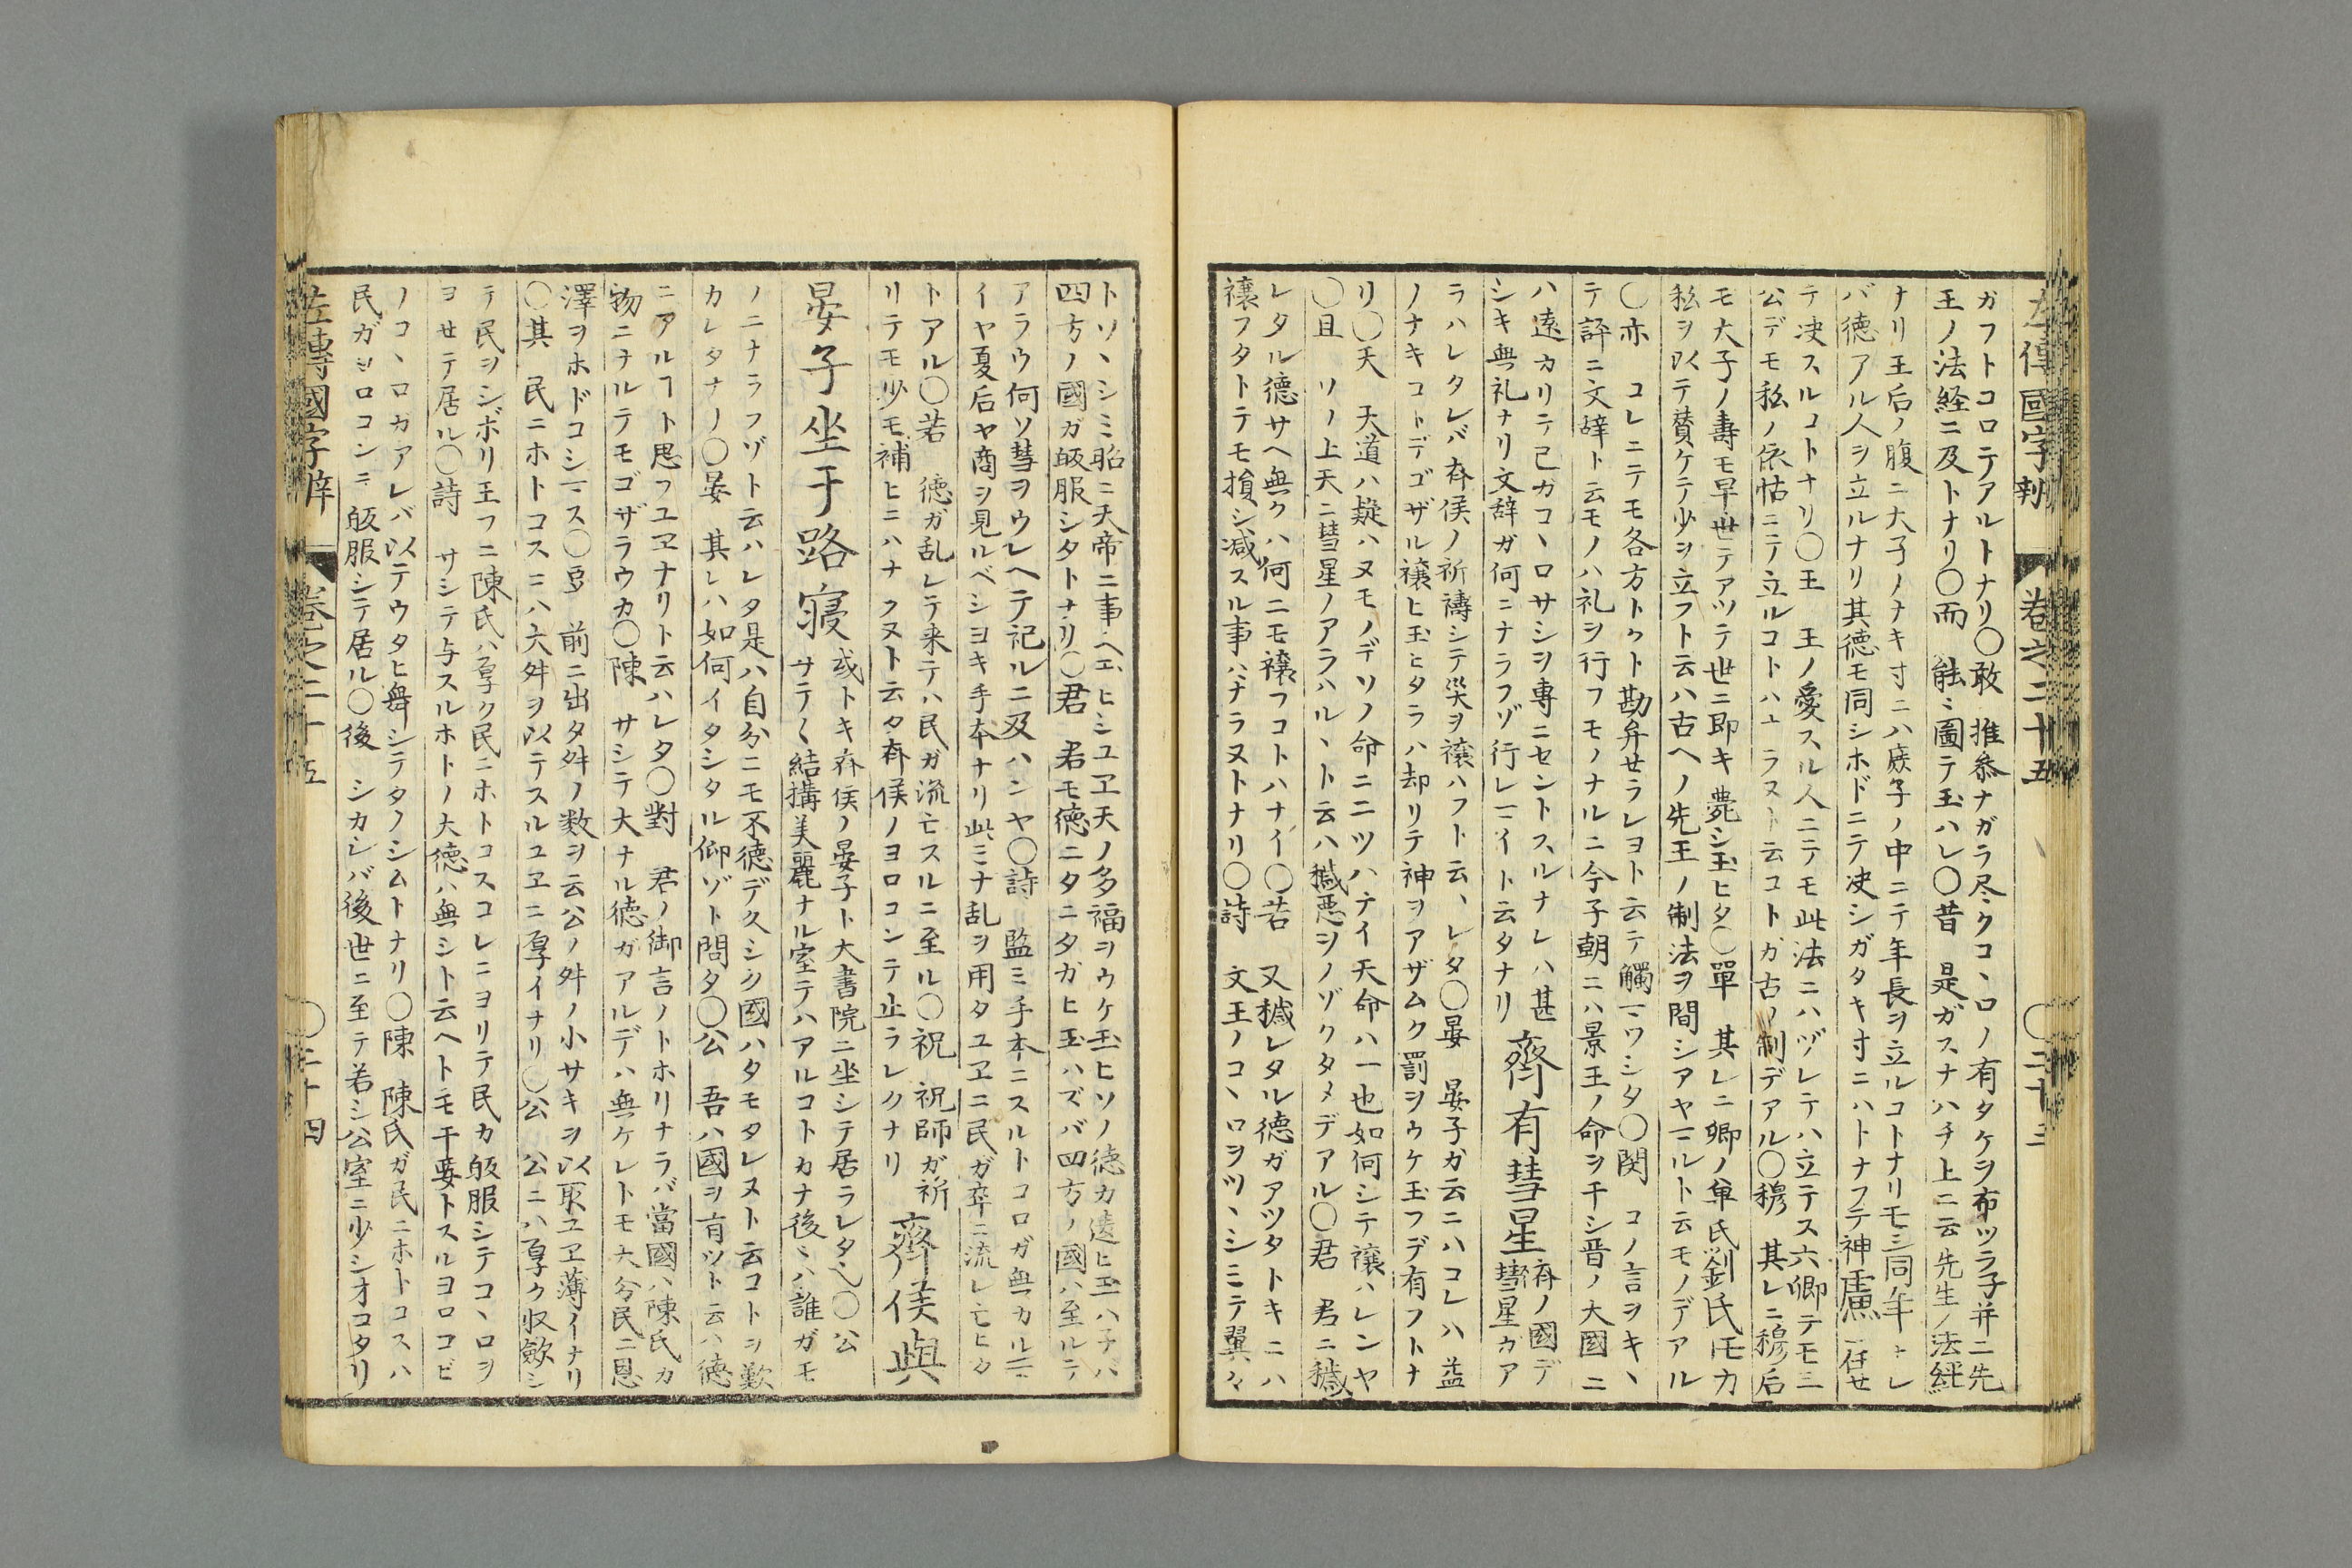 左傳國字辨 卷之二十五 〇二十三
ガフトコロテアルトナリ〇敢 推叅ナガラ尽クコヽロノ有タケヲ布ツラ子并ニ先
王ノ法経ニ及トナリ〇而 能ミ圖テ玉ハレ〇昔 是ガスナハチ上ニ云先生ノ法經
ナリ王后ノ腹ニ大子ノナキ寸ニハ庶子ノ中ニテ年長ヲ立ルコトナリモシ同年トレ
バ徳アル人ヲ立ルナリ其徳モ同シホドニテ决シガタキ寸ニハトナフテ神慮ニ任せ
テ决スルコトナリ〇王 王ノ愛スル人ニテモ此法ニハヅレテハ立テス六卿テモ三
公デモ私ノ依怙ニテ立ルコトハナラヌト云コトガ古ノ制デアル〇穆 其レニ穆后
モ大子ノ壽モ早世テアツテ世ニ即キ薨シ玉ヒタ〇單 其レニ卿ノ单氏劉氏氏カ
私ヲ以テ賛ケテ少ヲ立フト云ハ古ヘノ先王ノ制法ヲ間シアヤマルト云モノデアル
〇亦 コレニテモ各方トクト勘弁せラレヨト云テ觸マワシタ〇閔 コノ言ヲキヽ
テ評ニ文辞ト云モノハ礼ヲ行フモノナルニ今子朝ニハ景王ノ命ヲ干シ晋ノ大國ニ
ハ遠カリテ己ガコヽロサシヲ專ニセントスルナレハ甚
シキ無礼ナリ文辞ガ何ニナラフゾ行レマイト云タナリ
齊有彗星
齊ノ國デ
彗星カア
ラハレタレバ斉侯ノ祈禱シテ災ヲ禳ハフト云ヽレタ〇晏 晏子ガ云ニハコレハ益
ノナキコトデゴザル禳ヒ玉ヒタラハ却リテ神ヲアザムク罰ヲウケ玉フデ有フトナ
リ〇天 天道ハ疑ハヌモノデソノ命ニニツハテイ天命ハ一也如何シテ禳ハレンヤ
〇且 ソノ上天ニ彗星ノアラハルヽト云ハ穢悪ヲノゾクタメデアル〇君 君ニ穢
レタル德サヘ無クハ何ニモ禳フコトハナイ〇若 又穢レタル德ガアツタトキニハ
禳フタトテモ損シ减スル事ハナラヌトナリ〇詩 文王ノコヽロヲツヽシミテ翼々
トソヽシミ昭ニ天帝ニ事ヘエヒシユヱ天ノ多福ヲウケ玉ヒソノ徳カ違ヒ玉ハ子バ
四方ノ國ガ皈服シタトナリ〇君 君モ徳ニタニタガヒ玉ハズバ四方ノ國ハ至ルテ
アラウ何ソ彗ヲウレヘテ祀ルニ及ハンヤ〇詩 監ミ手本ニスルトコロガ無カルマ
イヤ夏后ヤ商ヲ見ルベシヨキ手本ナリ此ミナ乱ヲ用タユヱニ民ガ卒ニ流レ亡ヒタ
トアル〇若 徳ガ乱レテ来テハ民ガ流亡スルニ至ル〇祝 祝師ガ祈
リテモ少モ補ヒニハナラヌト云タ斉侯ノヨロコンテ止ラレタナリ
齊侯與
晏子坐于路寝
或トキ斉侯ノ晏子ト大書院ニ坐シテ居ラレタ〇公
サテ〱結搆美麗ナル室テハアルコトカナ後ニハ誰ガモ
ノニナラフゾト云ハレタ是ハ自分ニモ不德デ久シク國ハタモタレヌト云コトヲ歎
カレタナリ〇晏 其レハ如何イタシタル仰ゾト問タ〇公 吾ハ國ヲ有ツト云ハ德
ニアルヿト思フユヱナリト云ハレタ〇對 君ノ御言ノトホリナラバ當國ハ陳氏カ
物ニナルテモゴザラウカ〇陳 サシテ大ナル徳ガアルデハ無ケレトモ大分民ニ恩
澤ヲホドコシマス〇豆 前ニ出タ舛ノ数ヲ云公ノ舛ノ小サキヲ以取ユヱ薄イナリ
〇其 民ニホトコスニハ大舛ヲ以テスルユヱニ厚イナリ〇公 公ニハ厚ク収歛シ
テ民ヲシボリ玉フニ陳氏ハ厚ク民ニホトコスコレニヨリテ民カ皈服シテコヽロヲ
ヨせテ居ル〇詩 サシテ与スルホトノ大徳ハ無シト云ヘトモ干要トスルヨロコビ
ノコヽロカアレバ以テウタヒ舞シテタノシムトナリ〇陳 陳氏ガ民ニホトコスハ
民ガヨロコンニ 皈服シテ居ル〇後 シカレバ後世ニ至テ若シ公室ニ少シオコタリ
左傳國字辨 卷之二十五 〇二十四